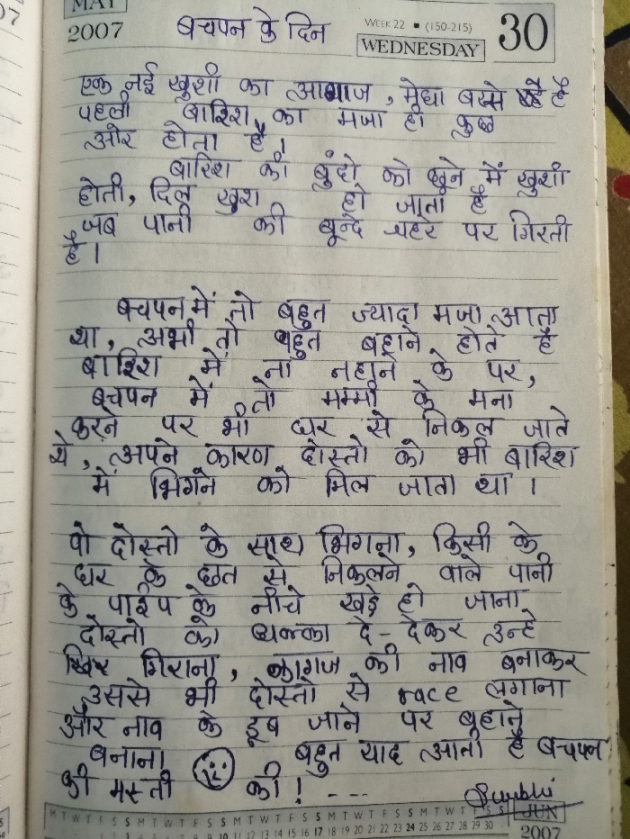 MAY
2007
बचपन के दिन
WEEK 22 ▪ (150-215)
WEDNESDAY
30
एक नई खुशी का आगाज, मेघा बरसे है
पहली बारिश का मजा ही कुछ
और होता है।
बारिश की बुंदो को छुने में खुशी
होती, दिल खुश हो जाता है
जब पानी की बून्दे चहरे पर गिरती
है।
बचपन में तो बहुत ज्यादा मजा आता
था, अभी तो बहुत बहाने होते है
बारिश में ना नहाने के पर,
बचपन में तो मम्मी के मना
करने पर भी घर से निकल जाते
थे, अपने कारण दोस्तो को भी बारिश
में भिगने को मिल जाता था।
वो दोस्तो के साथ भिगना, किसी के
घर के छत से निकलने वाले पानी
के पाईप के नीचे खड़े हो जाना
दोस्तो को धक्का दे-देकर उन्हे
गिराना, कागज की नाव बनाकर
उससे भी दोस्तो से race लगाना
और नाव के डूब जाने पर बहाने
बनाना बहुत याद आती है बचपन
की मस्ती की! ---
JUN
M T W T F S S M T W T F S S M T W T F S S M T W T F S S M T W T F S
2007